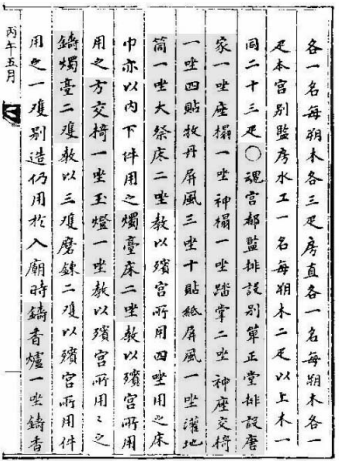 各一名每朔木各三疋房直各一名每朔木各一
疋本宮別監房水工一名每朔木二疋以上木一
同二十三疋○魂宮都監排設別單正堂排設唐
家一坐座榻一坐神榻一坐踏掌二坐神座交椅
一坐四貼牧丹屏風三坐十貼紙屏風一坐灌地
筒一坐大祭床二坐敎以殯宮所用四坐用之床
巾亦以內下件用之燭臺床二坐敎以殯宮所用
用之方交椅一坐玉燈一坐敎以殯宮所用々之
鑄燭臺二雙敎以三雙磨鍊二雙以殯宮所用件
用之一雙別造仍用於入廟時鑄香爐一坐鑄香
丙午五月